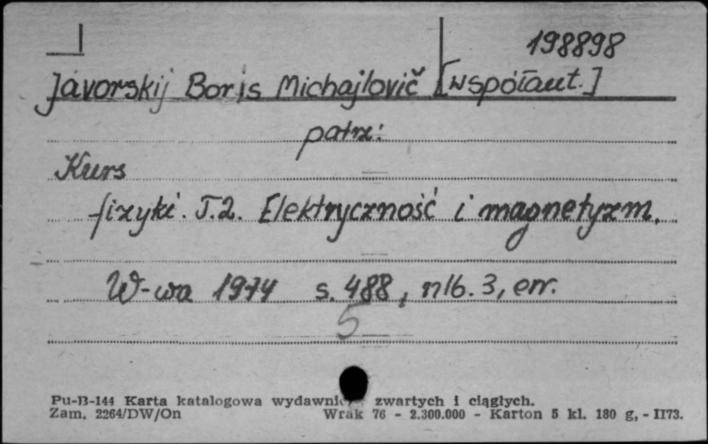 198898
Javorskij Boris Michajlovič [współaut.]
patrz:
Kurs
fizyki. T.2. Elektryczność i magnetyzm.
W-wa 1974 s. 488, nlb. 3, err.
5
Pu-B-144 Karta katalogowa wydawnic zwartych i ciągłych.
Zam. 2264/DW/On Wrak 76 - 2.300.000 - Karton 5 kl. 180 g, - II73.